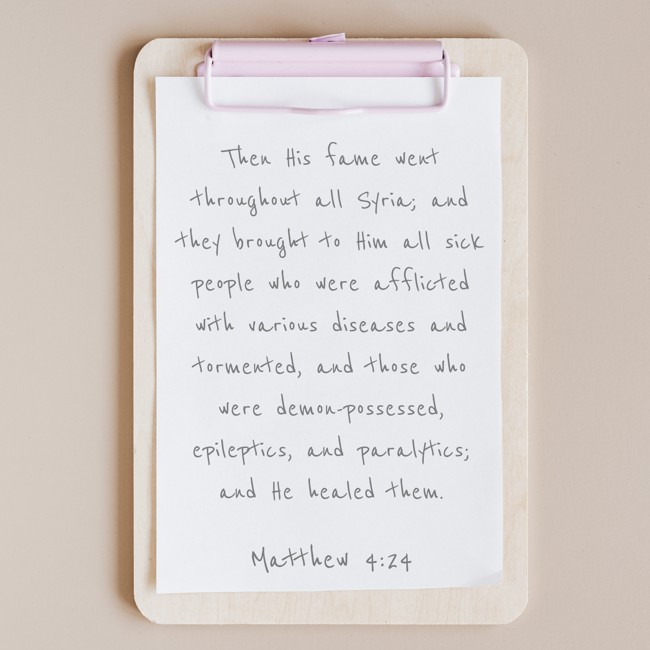 Then His fame went
throughout all Syria; and
they brought to Him all sick
people who were afflicted
with various diseases and
tormented, and those who
were demon-possessed,
epileptics, and paralytics;
and He healed them.
Matthew 4:24